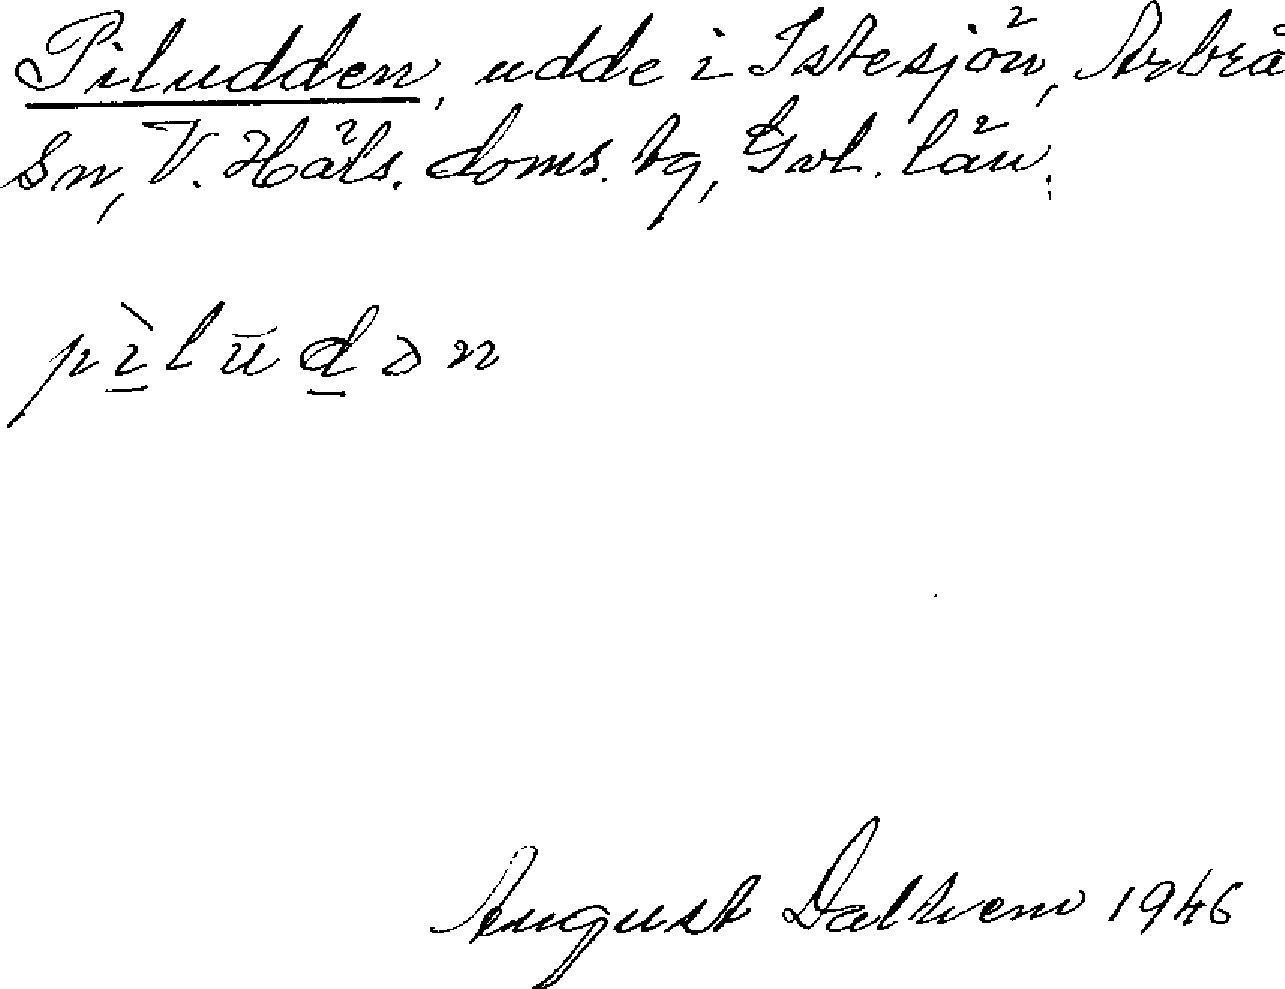 Piludden, udde i Istesjön, Arbrå
Sn, V. Häls. doms. tg, Gvl. län.
pì̠lūd̠ən
August Daltrem 1946